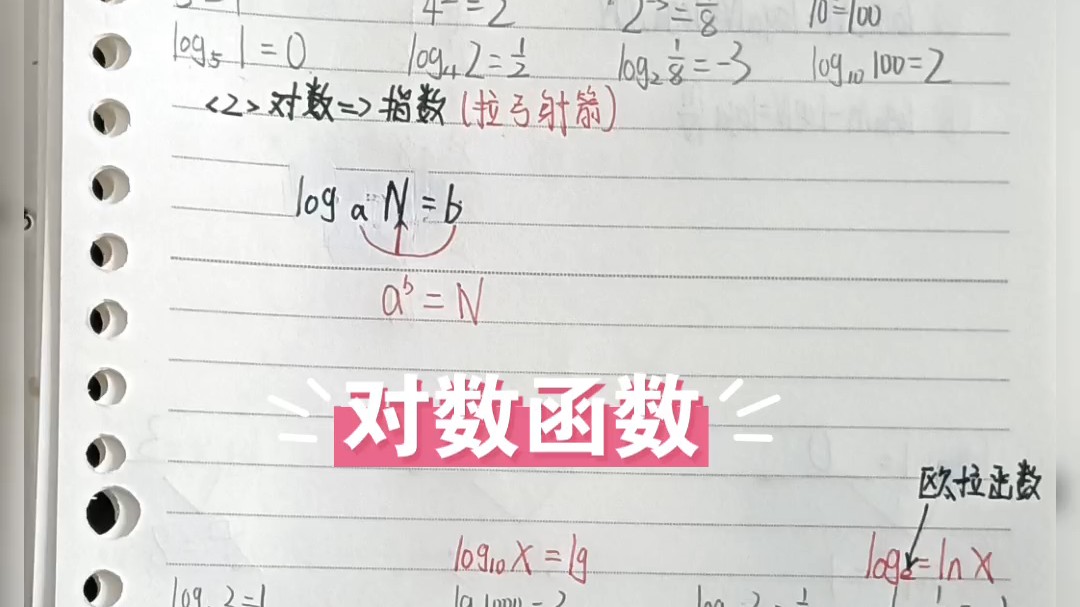 4 = 2 2⁻³=1/8 10=100
log₅1=0 log₄2=1/2 log₂1/8=-3 log₁₀100=2
<2>对数=>指数(拉弓射箭)
logₐN=b
aᵇ=N
对数函数
欧拉函数
log₁₀X=lg log =lnX